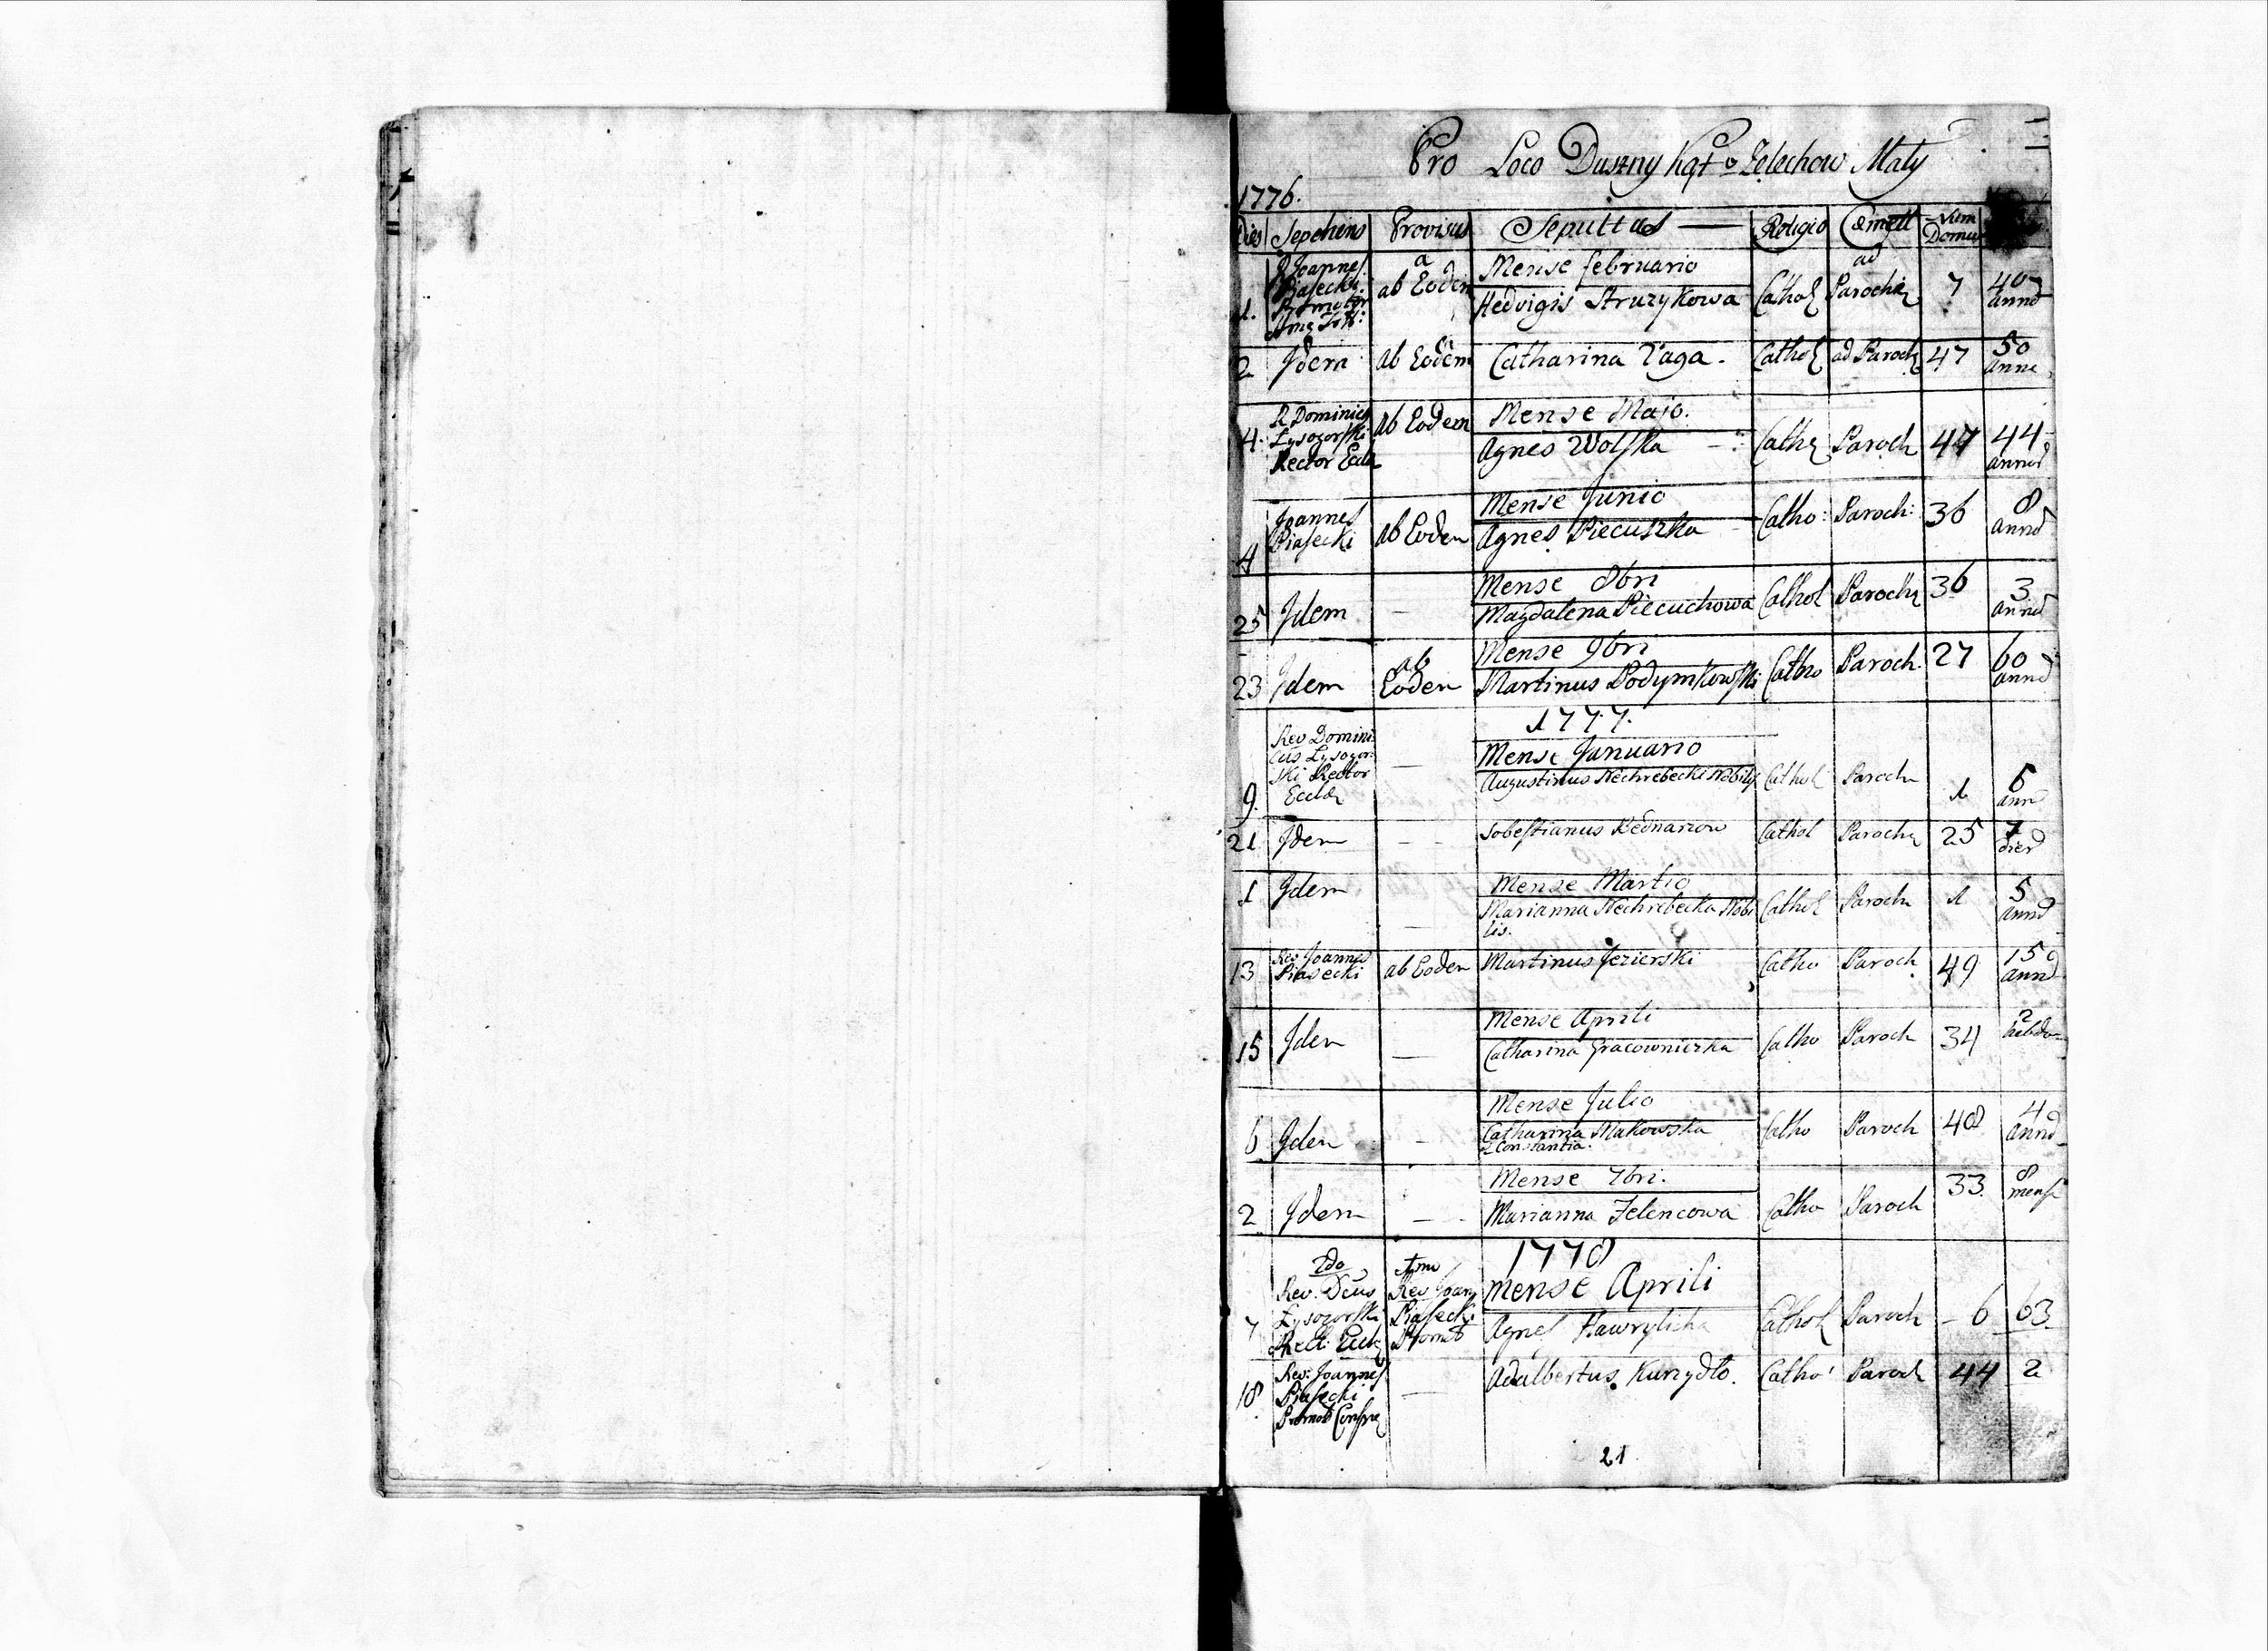 Pro Loco Duszny Kąt v Zelechow Maty
1776.
Dies Sepeliens Provisus Sepultus Religio Cemett Num Domus
1. R Joannes Piasecki Promotor a ab Eodem Mense februario Hedvigis Struzykowa Cathol ad Parochia 7 40 annor
2 Jdem ab Eodem Catharina Zaga. Cathol ad Paroch 47 50 anno
4. R Dominic Lysogorski Rector Eccla ab Eodem Mense Majo. Agnes Wolska Cath Paroch 47 44 annor
4 Joannes Piasecki ab Eoden Mense Junio Agnes Piecuszka Catho: Paroch: 36 8 annor
25 Jdem — Mense 8bri Magdalena Piecuchowa Cathol Paroch 36 3 annor
23 Jdem ab Eoden Mense 9bri Martinus Podymkowski Catho Paroch. 27 60 annor
1777.
9. Rev Domini cus Lysogor ski Rector Eccla — Mense Januario Augustinus Nechrebecki Nobilis Cathol Paroch 1 6 ann
21 Jdem — Sobestianus Bednarzow Cathol Paroch 25 7 dier
1 Jdem — Mense Martio Marianna Nechrebecka Nobi lis. Cathol Paroch 1 5 annor
13 Rev Joannes Piasecki ab Eoden Martinus Jezierski Catho Paroch 49 15 annor
15 Jden — Mense Aprili Catharina Gracowniczka Catho Paroch 34 2 hebdo
6 Jden — Mense Julio Catharina Makowska Constantia. Catho Paroch 48 4 annor
2 Jdem — Mense 7bri. Marianna Zelencowa Catho Paroch 33 8 mens
1778
7 2do Rev. Dcus Lysogorski Rect: Eccl Rev Joan Piasecki Promot mense Aprili Agnes Hawrylicha Cathol Paroch 6 63.
18 Rev: Joannes Piasecki Promot — Adalbertus Kurzydło. Catho Paroch 44 2
21